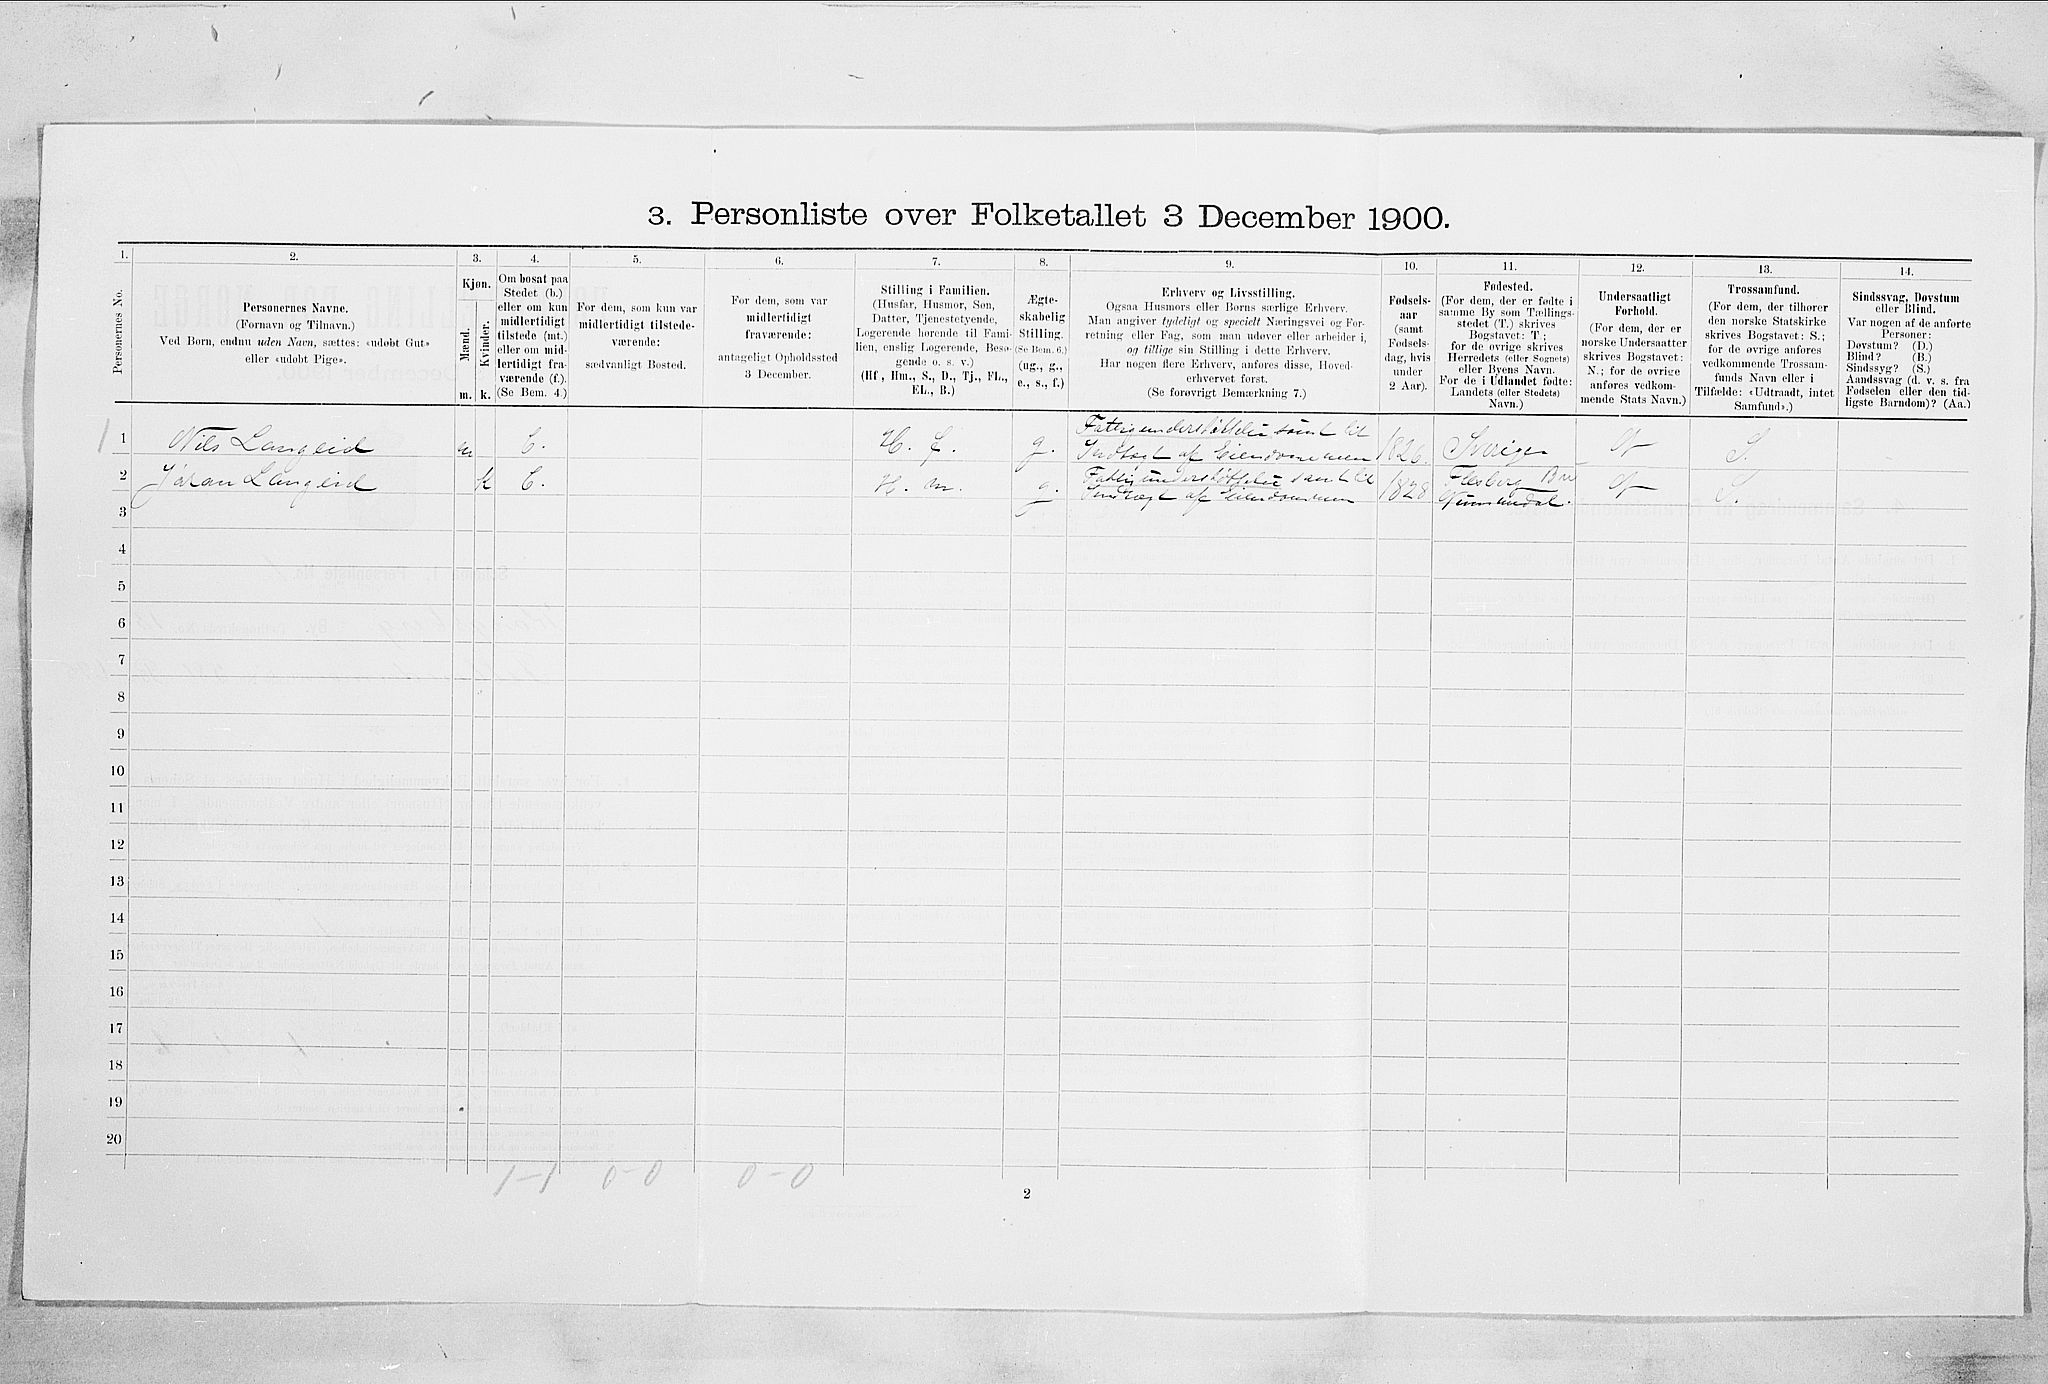 3. Personliste over Folketallet 3 December 1900.
1. 2. 3. 4. 5. 6. 7. 8. 9. 10. 11. 12. 13. 14.
Personernes No.
Personernes Navne.
(Fornavn og Tilnavn.)
Ved Børn, endnu uden Navn, sættes: «udøbt Gut»
eller «udøbt Pige».
Kjøn.
Mænd.
Kvinder.
m. k.
Om bosat paa
Stedet (b.)
eller om kun
midlertidigt
tilstede (mt.)
eller om mid-
lertidigt fra-
værende (f.).
(Se Bem. 4.)
For dem, som kun var
midlertidigt tilstede-
værende:
sædvanligt Bosted.
For dem, som var
midlertidigt
fraværende:
antageligt Opholdssted
3 December.
Stilling i Familien.
(Husfar, Husmor, Søn,
Datter, Tjenestetyende,
Logerende hørende til Fami-
lien, enslig Logerende, Besø-
gende o. s. v.)
(Hf., Hm., S., D., Tj., FL.,
EL., B.)
Ægte-
skabelig
Stilling.
(Se Bem. 6.)
(ug., g.,
e., s., f.)
Erhverv og Livsstilling.
Ogsaa Husmors eller Børns særlige Erhverv.
Man angiver tydeligt og specielt Næringsvei og For-
retning eller Fag, som man udøver eller arbeider i,
og tillige sin Stilling i dette Erhverv.
Har nogen flere Erhverv, anføres disse, Hoved-
erhvervet først.
(Se forøvrigt Bemærkning 7.)
Fødsels-
aar
(samt
Fødsels-
dag, hvis
under
2 Aar).
Fødested.
(For dem, der er fødte i
samme By som Tællings-
stedet (T.) skrives
Bogstavet: T.;
for de øvrige skrives
Herredets (eller Sognets)
eller Byens Navn.
For de i Udlandet fødte:
Landets (eller Stedets)
Navn.)
Undersaatligt
Forhold.
(For dem, der er
norske Undersaatter
skrives Bogstavet:
N.; for de øvrige
anføres vedkom-
mende Stats Navn.)
Trossamfund.
(For dem, der tilhører
den norske Statskirke
skrives Bogstavet: S.;
for de øvrige anføres
vedkommende Trossam-
funds Navn eller i
Tilfælde: «Udtraadt, intet
Samfund».)
Sindssvag, Døvstum
eller Blind.
Var nogen af de anførte
Personer:
Døvstum? (D.)
Blind? (B.)
Sindssyg? (S.)
Aandssvag (d. v. s. fra
Fødselen eller den tid-
ligste Barndom)? (Aa.)
1 Nils Langeid m b. H. f. g. Fattigunderstøttelse samt lit
Indtægt af Eiendommen 1826. Sverige N S.
2 Jøran Langeid k b. H. m. g. Fattigunderstøttelse samt lit
Indtægt af Eiendommen 1828 Flesberg
Nummedal. N S.
3
4
5
6
7
8
9
10
11
12
13
14
15
16
17
18
19
20
1-1 0-0 0-0
2